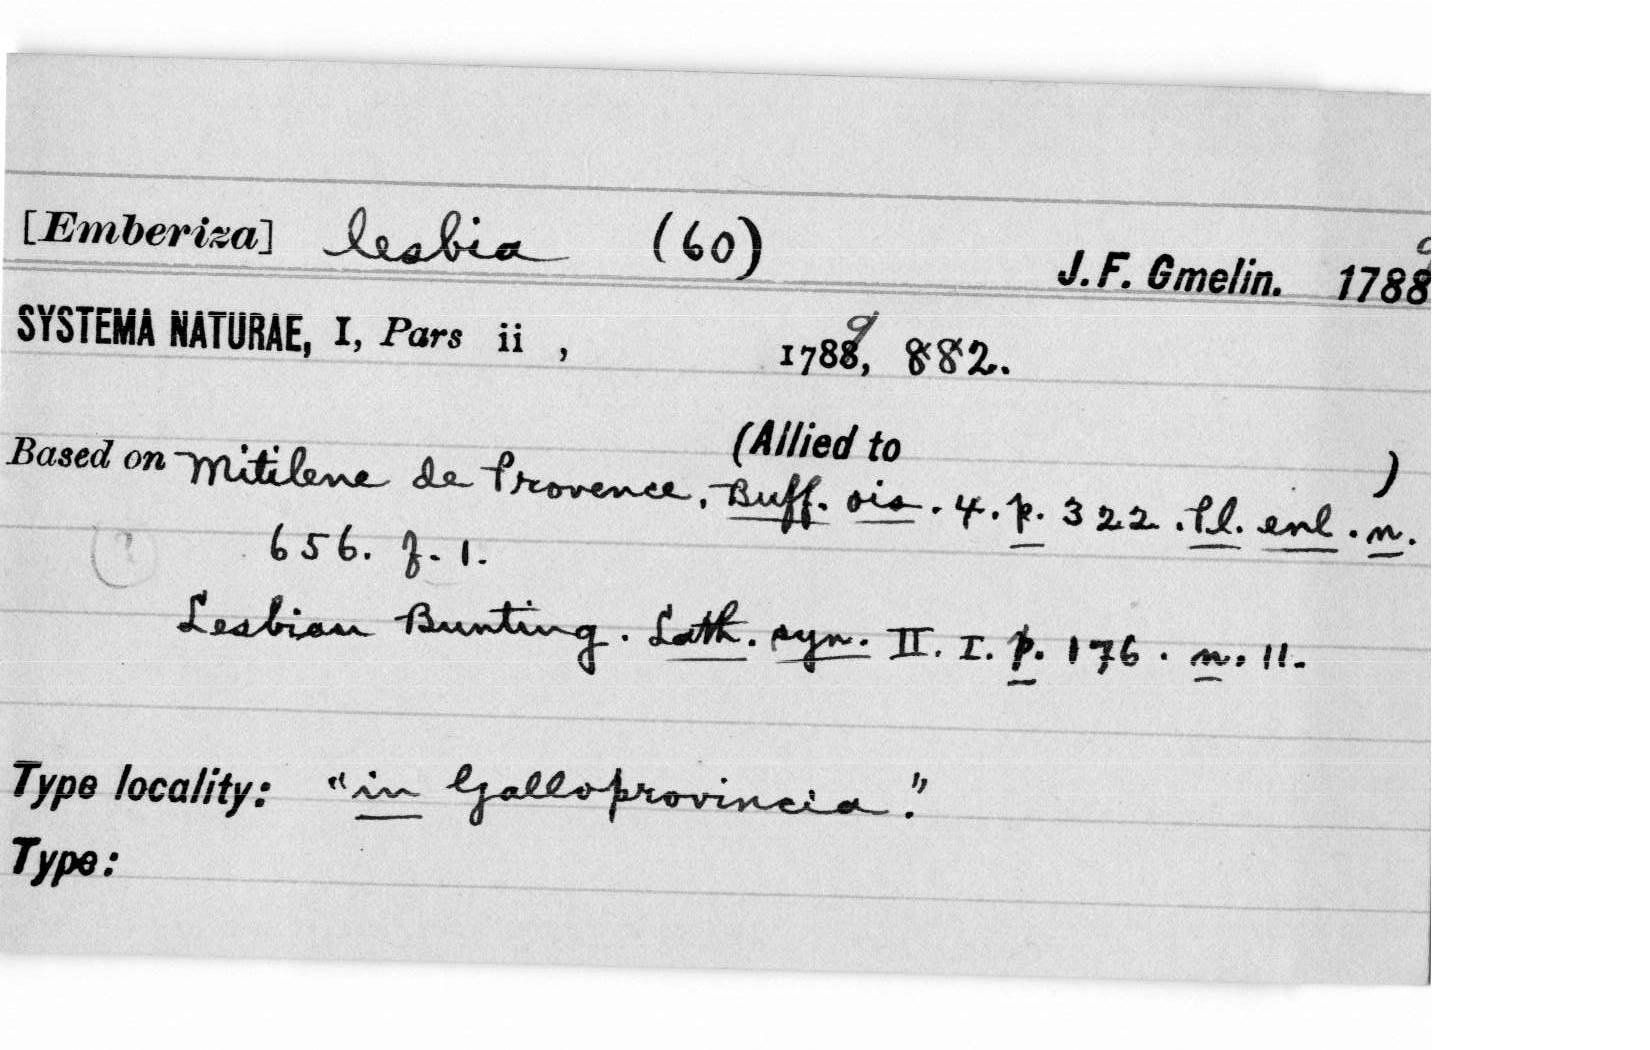 [Emberiza] lesbia (60)
J. F. Gmelin. 1788 9
SYSTEMA NATURAE, I, Pars ii , 1788 9, 882.
(Allied to )
Based on Mitilene de Provence. Buff. ois. 4. p. 322. Pl. enl. n.
(?) 656. f. 1.
Lesbian Bunting. Lath. syn. II. I. p. 176. n. 11.
Type locality: "in Galloprovincia."
Type: